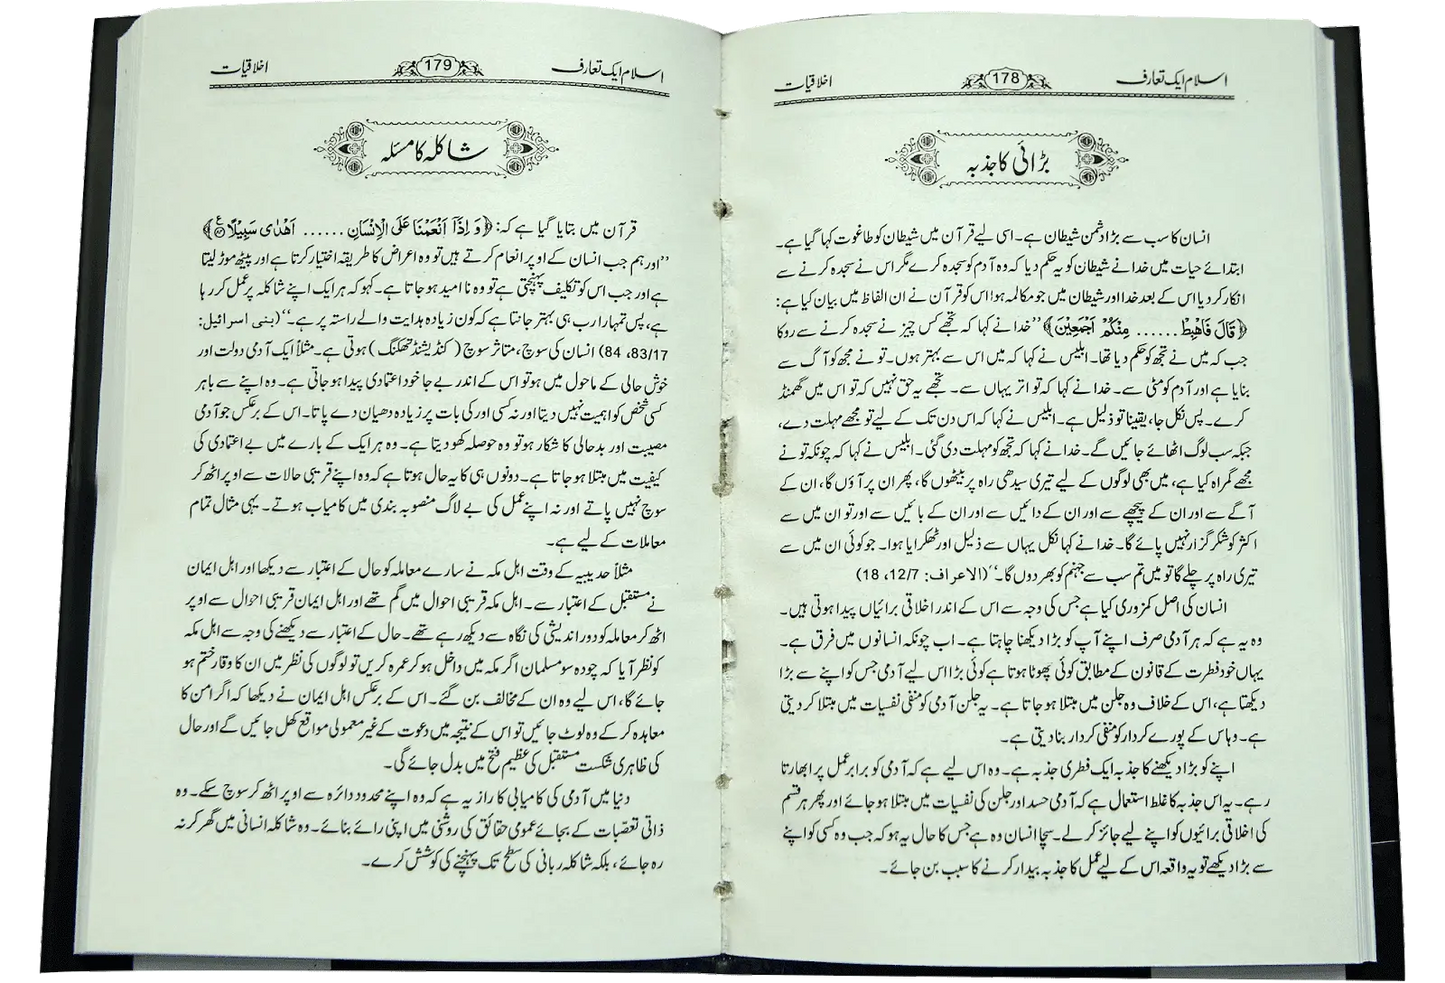 اسلام ایک تعارف 178 اخلاقیات
بڑائی کا جذبہ
انسان کا سب سے بڑا دشمن شیطان ہے۔ اسی لیے قرآن میں شیطان کو طاغوت کہا گیا ہے۔
ابتدائے حیات میں خدا نے شیطان کو یہ حکم دیا کہ وہ آدم کو سجدہ کرے مگر اس نے سجدہ کرنے سے
انکار کر دیا اس کے بعد خدا اور شیطان میں جو مکالمہ ہوا اس کو قرآن نے ان الفاظ میں بیان کیا ہے:
﴿قَالَ فَاهْبِطْ ...... مِنْكُمْ اَجْمَعِیْنَ﴾ ’’خدا نے کہا کہ تجھے کس چیز نے سجدہ کرنے سے روکا
جب کہ میں نے تجھ کو حکم دیا تھا۔ ابلیس نے کہا کہ میں اس سے بہتر ہوں۔ تو نے مجھ کو آگ سے
بنایا ہے اور آدم کو مٹی سے۔ خدا نے کہا کہ تو اتر یہاں سے۔ تجھے یہ حق نہیں کہ تو اس میں گھمنڈ
کرے۔ پس نکل جا، یقینا تو ذلیل ہے۔ ابلیس نے کہا کہ اس دن تک کے لیے تو مجھے مہلت دے،
جبکہ سب لوگ اٹھائے جائیں گے۔ خدا نے کہا کہ تجھ کو مہلت دی گئی۔ ابلیس نے کہا کہ چونکہ تو نے
مجھے گمراہ کیا ہے، میں بھی لوگوں کے لیے تیری سیدھی راہ پر بیٹھوں گا، پھر ان پر آؤں گا، ان کے
آگے سے اور ان کے پیچھے سے اور ان کے دائیں سے اور ان کے بائیں سے اور تو ان میں سے
اکثر کو شکر گزار نہیں پائے گا۔ خدا نے کہا نکل یہاں سے ذلیل اور ٹھکرایا ہوا۔ جو کوئی ان میں سے
تیری راہ پر چلے گا تو میں تم سب سے جہنم کو بھر دوں گا۔‘‘ (الاعراف: 12/7، 18)
انسان کی اصل کمزوری کیا ہے جس کی وجہ سے اس کے اندر اخلاقی برائیاں پیدا ہوتی ہیں۔
وہ یہ ہے کہ ہر آدمی صرف اپنے آپ کو بڑا دیکھنا چاہتا ہے۔ اب چونکہ انسانوں میں فرق ہے۔
یہاں خود فطرت کے قانون کے مطابق کوئی چھوٹا ہوتا ہے کوئی بڑا اس لیے آدمی جس کو اپنے سے بڑا
دیکھتا ہے، اس کے خلاف وہ جلن میں مبتلا ہو جاتا ہے۔ یہ جلن آدمی کو منفی نفسیات میں مبتلا کر دیتی
ہے۔ وہ اس کے پورے کردار کو منفی کردار بنا دیتی ہے۔
اپنے کو بڑا دیکھنے کا جذبہ ایک فطری جذبہ ہے۔ وہ اس لیے ہے کہ آدمی کو برابر عمل پر ابھارتا
رہے۔ یہ اس جذبہ کا غلط استعمال ہے کہ آدمی حسد اور جلن کی نفسیات میں مبتلا ہو جائے اور پھر ہر قسم
کی اخلاقی برائیوں کو اپنے لیے جائز کر لے۔ سچا انسان وہ ہے جس کا حال یہ ہو کہ جب وہ کسی کو اپنے
سے بڑا دیکھے تو یہ واقعہ اس کے لیے عمل کا جذبہ بیدار کرنے کا سبب بن جائے۔
اسلام ایک تعارف 179 اخلاقیات
شاکلہ کا مسئلہ
قرآن میں بتایا گیا ہے کہ: ﴿وَ اِذَاۤ اَنْعَمْنَا عَلَی الْاِنْسَانِ ...... اَهْدٰی سَبِیْلًا﴾
’’اور ہم جب انسان کے اوپر انعام کرتے ہیں تو وہ اعراض کا طریقہ اختیار کرتا ہے اور پیٹھ موڑ لیتا
ہے اور جب اس کو تکلیف پہنچتی ہے تو وہ نا امید ہو جاتا ہے۔ کہو کہ ہر ایک اپنے شاکلہ پر عمل کر رہا
ہے، پس تمہارا رب ہی بہتر جانتا ہے کہ کون زیادہ ہدایت والے راستہ پر ہے۔‘‘ (بنی اسرائیل:
83/17، 84) انسان کی سوچ، متاثر سوچ (کنڈیشنڈ تھنکنگ) ہوتی ہے۔ مثلاً ایک آدمی دولت اور
خوش حالی کے ماحول میں ہو تو اس کے اندر بے جا خود اعتمادی پیدا ہو جاتی ہے۔ وہ اپنے سے باہر
کسی شخص کو اہمیت نہیں دیتا اور نہ کسی اور کی بات پر زیادہ دھیان دے پاتا۔ اس کے برعکس جو آدمی
مصیبت اور بدحالی کا شکار ہو تو وہ حوصلہ کھو دیتا ہے۔ وہ ہر ایک کے بارے میں بے اعتمادی کی
کیفیت میں مبتلا ہو جاتا ہے۔ دونوں ہی کا یہ حال ہوتا ہے کہ وہ اپنے قریبی حالات سے اوپر اٹھ کر
سوچ نہیں پاتے اور نہ اپنے عمل کی بے لاگ منصوبہ بندی میں کامیاب ہوتے۔ یہی مثال تمام
معاملات کے لیے ہے۔
مثلاً حدیبیہ کے وقت اہل مکہ نے سارے معاملہ کو حال کے اعتبار سے دیکھا اور اہل ایمان
نے مستقبل کے اعتبار سے۔ اہل مکہ قریبی احوال میں گم تھے اور اہل ایمان قریبی احوال سے اوپر
اٹھ کر معاملہ کو دور اندیشی کی نگاہ سے دیکھ رہے تھے۔ حال کے اعتبار سے دیکھنے کی وجہ سے اہل مکہ
کو نظر آیا کہ چودہ سو مسلمان اگر مکہ میں داخل ہو کر عمرہ کریں تو لوگوں کی نظر میں ان کا وقار ختم ہو
جائے گا، اس لیے وہ ان کے مخالف بن گئے۔ اس کے برعکس اہل ایمان نے دیکھا کہ اگر امن کا
معاہدہ کر کے وہ لوٹ جائیں تو اس کے نتیجہ میں دعوت کے غیر معمولی مواقع کھل جائیں گے اور حال
کی ظاہری شکست مستقبل کی عظیم فتح میں بدل جائے گی۔
دنیا میں آدمی کی کامیابی کا راز یہ ہے کہ وہ اپنے محدود دائرہ سے اوپر اٹھ کر سوچ سکے۔ وہ
ذاتی تعصّبات کے بجائے عمومی حقائق کی روشنی میں اپنی رائے بنائے۔ وہ شاکلہ انسانی میں گھر کر نہ
رہ جائے، بلکہ شاکلہ ربانی کی سطح تک پہنچنے کی کوشش کرے۔